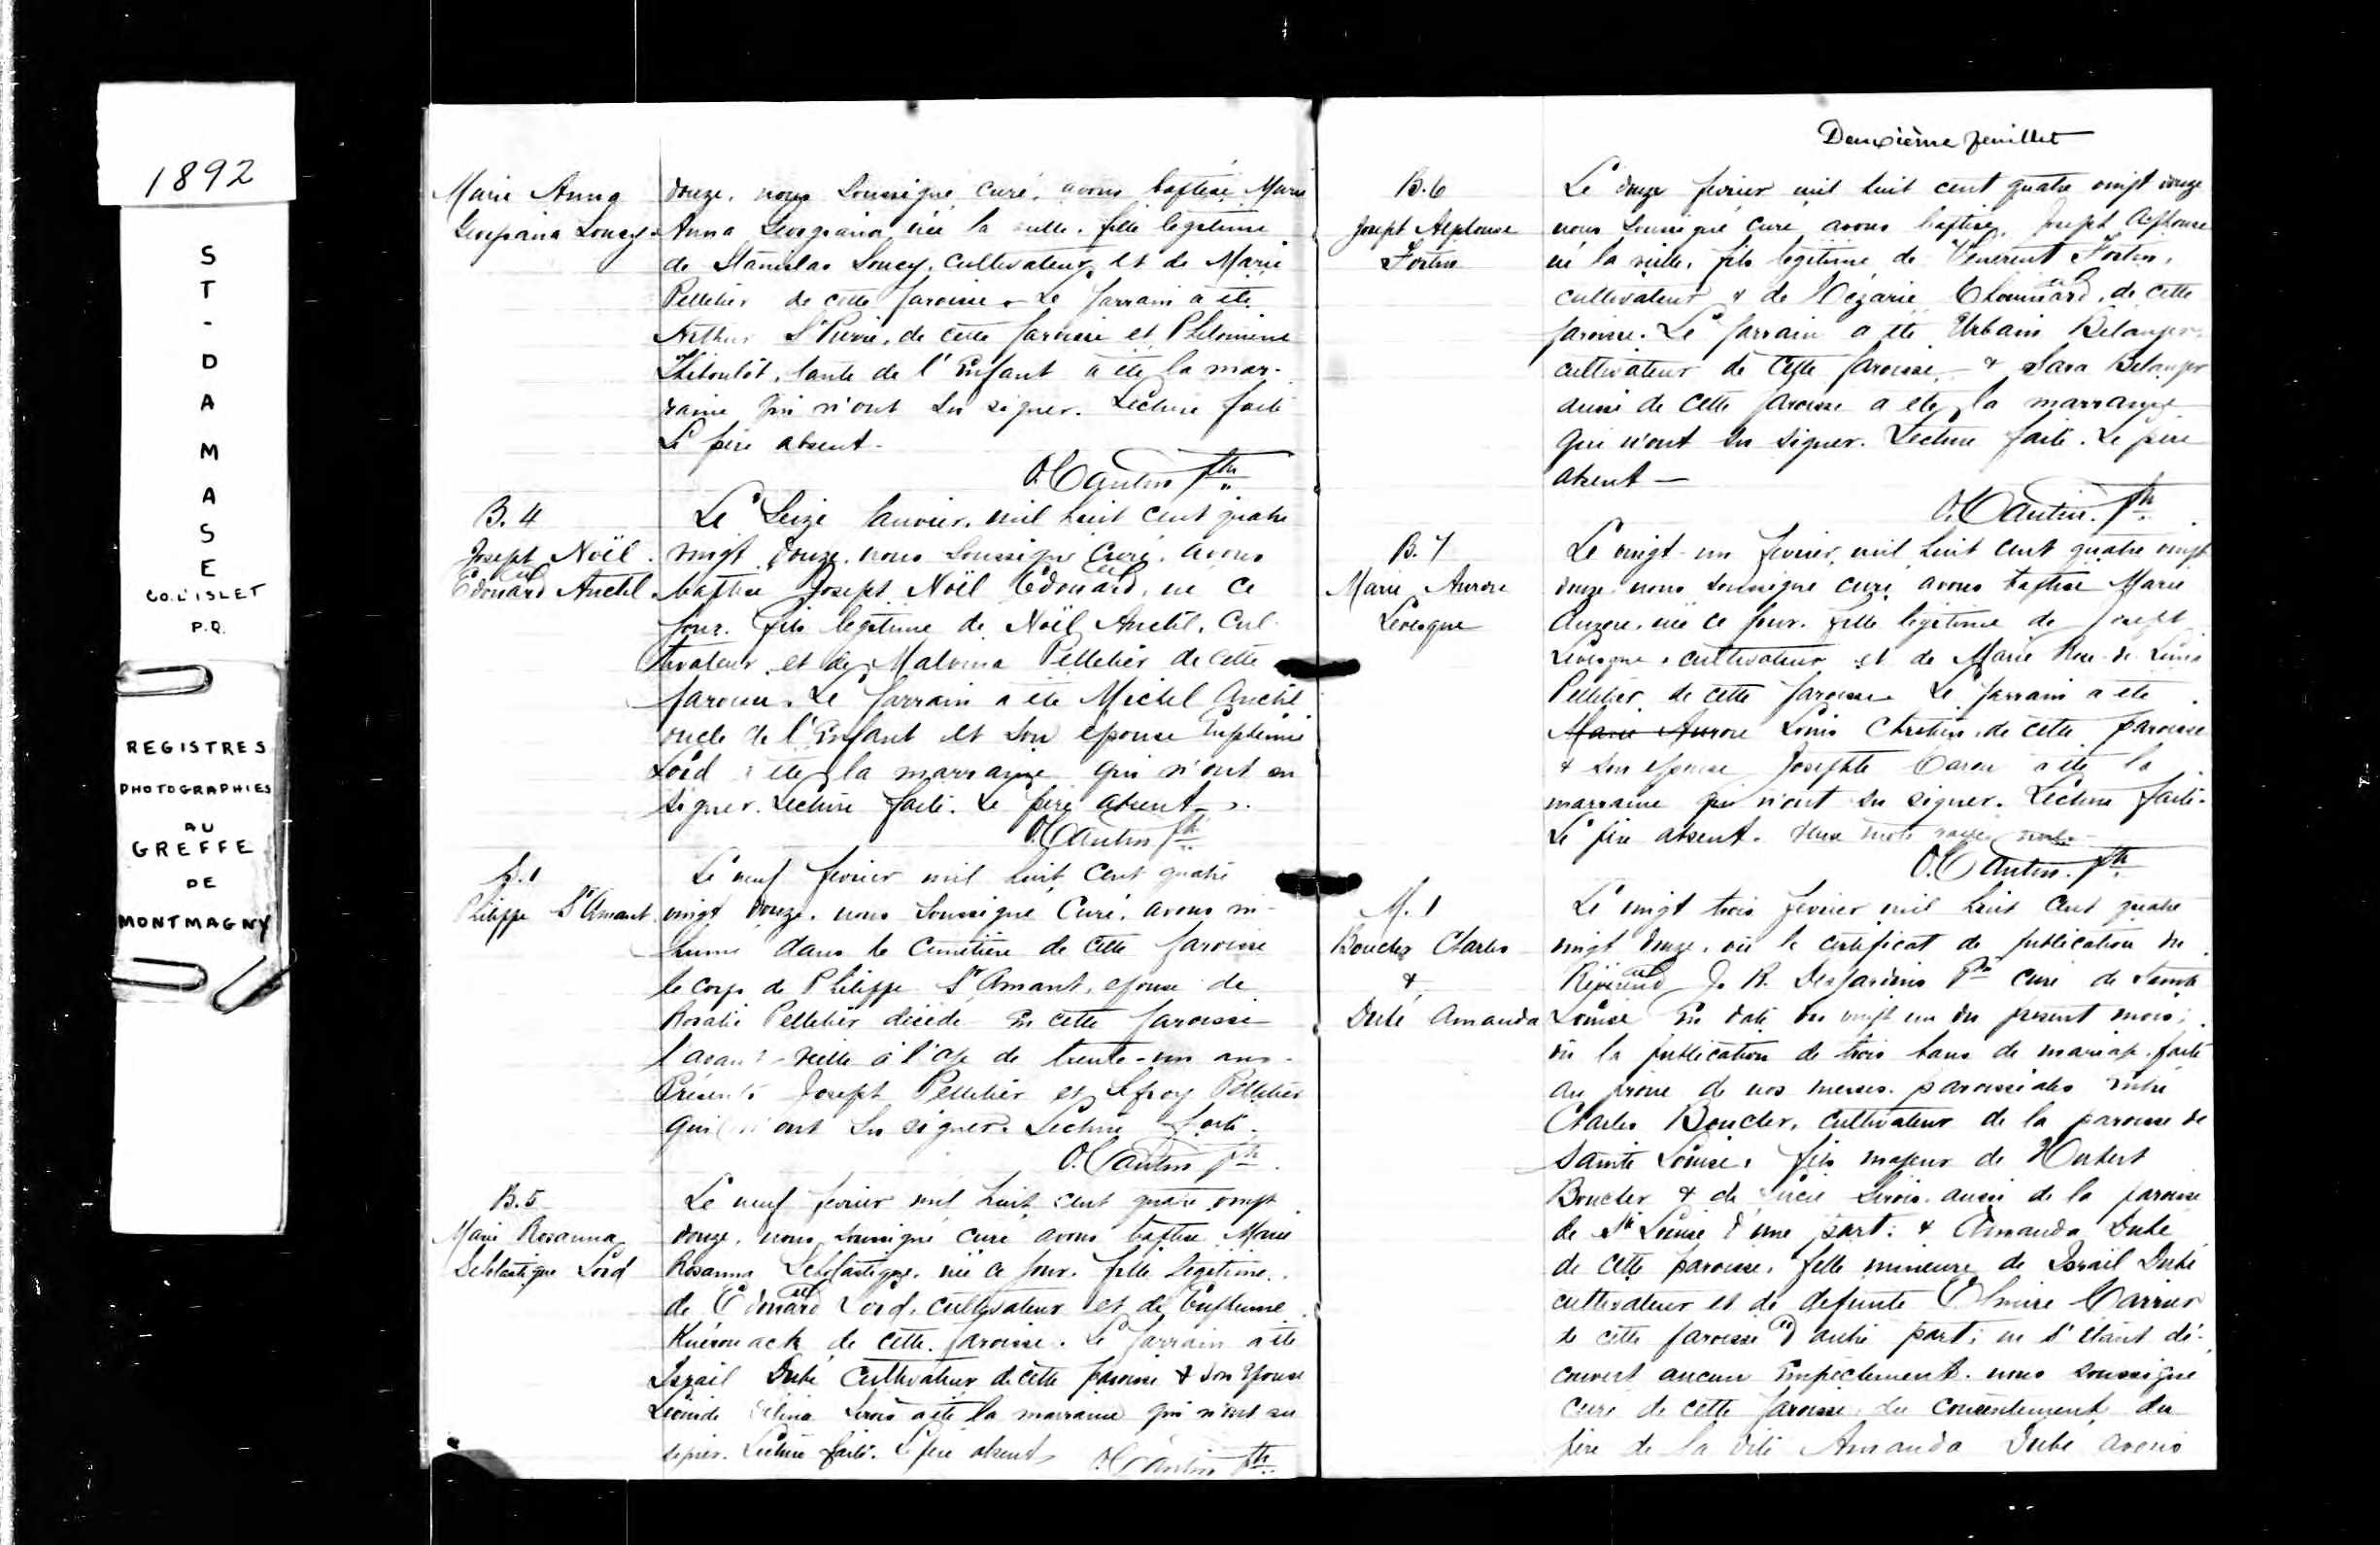 1892
S
T
-
D
A
M
A
S
E
CO. L'ISLET
P.Q.
REGISTRES
PHOTOGRAPHIES
AU
GREFFE
DE
MONTMAGNY
Marie Anna
Georgiana Soucy
douze, nous soussigné curé, avons baptisé Marie
Anna Georgiana née la veille, fille légitime
de Stanislas Soucy, cultivateur et de Marie
Pelletier de cette paroisse. Le parrain a été
Arthur St Pierre, de cette paroisse et Philomène
Thiboutôt, tante de l'Enfant a été la mar-
raine qui n'ont su signer. Lecture faite
Le père absent.
O. Cantin Ptre
B. 4
Joseph Noël
Edouard Anctil
Le Seize Janvier, mil huit cent quatre
vingt douze, nous soussigné Curé, avons
baptisé Joseph Noël Edouard, né ce
jour, fils légitime de Noël Anctil, Cul-
tivateur et de Malvina Pelletier de cette
paroisse. Le parrain a été Michel Anctil
oncle de l'Enfant et son épouse Euphémie
Lord a été la marraine qui n'ont su
signer. Lecture faite. Le père absent.
O. Cantin Ptre
S. 1
Philippe St Amant
Le neuf février mil huit cent quatre
vingt douze, nous soussigné Curé, avons in-
humé dans le cimetière de cette paroisse
le corps de Philippe St Amant, époux de
Rosalie Pelletier décédé en cette paroisse
l'avant-veille à l'âge de trente-un ans.
Présents Joseph Pelletier et Pelletier
qui n'ont su signer. Lecture faite.
O. Cantin Ptre
B. 5
Marie Rosanna
Scholastique Lord
Le neuf février mil huit cent quatre vingt
douze, nous soussigné curé avons baptisé Marie
Rosanna Scholastique, née ce jour, fille légitime
de Edouard Lord, cultivateur et de Euphémie
Kuérouack de cette paroisse. Le parrain a été
Israël Dubé Cultivateur de cette paroisse & son épouse
Sirois a été la marraine qui n'ont su
signer. Lecture faite. Le père absent
O. Cantin Ptre
Deuxième feuillet
B. 6
Joseph Alphonse
Fortin
Le douze février mil huit cent quatre vingt douze
nous soussigné curé avons baptisé Joseph Alphonse
né la veille, fils légitime de Vénérent Fortin,
cultivateur & de Chouinard, de cette
paroisse. Le parrain a été Urbain Bélanger
cultivateur de cette paroisse & Sara Bélanger
aussi de cette paroisse a été la marraine
qui n'ont su signer. Lecture faite. Le père
absent —
O. Cantin. Ptre
B. 7
Marie Aurore
Levesque
Le vingt-un février, mil huit cent quatre vingt
douze nous soussigné curé avons baptisé Marie
Aurore, née ce jour, fille légitime de Joseph
Levesque, cultivateur et de Marie Rose de Lima
Pelletier de cette paroisse. Le parrain a été
Marie Aurore Louis Chrétien, de cette paroisse
& son épouse Josephte Caron a été la
marraine qui n'ont su signer. Lecture faite.
Le père absent. deux mots rayés nuls
O. Cantin. Ptre
M. 1
Boucher Charles
&
Dubé Amanda
Le vingt trois février mil huit cent quatre
vingt douze, vu le certificat de publication du
Révérend J. R. Desjardins Ptre curé de Sainte
Louise en date du vingt un du présent mois;
vu la publication de trois bans de mariage faite
au prône de nos messes paroissiales entre
Charles Boucher, cultivateur de la paroisse de
Sainte Louise, fils majeur de Hubert
Boucher & de Lucie Sirois aussi de la paroisse
de Ste Louise d'une part; & Amanda Dubé
de cette paroisse, fille mineure de Israël Dubé
cultivateur et de défunte Elmire Carrier
de cette paroisse d'autre part; ne s'étant dé-
couvert aucun Empêchement, nous soussigné
Curé de cette paroisse du consentement du
père de la dite Amanda Dubé avons